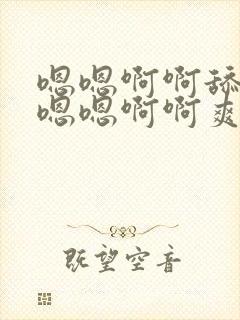 嗯嗯啊啊舔
嗯嗯啊啊爽
既望空音